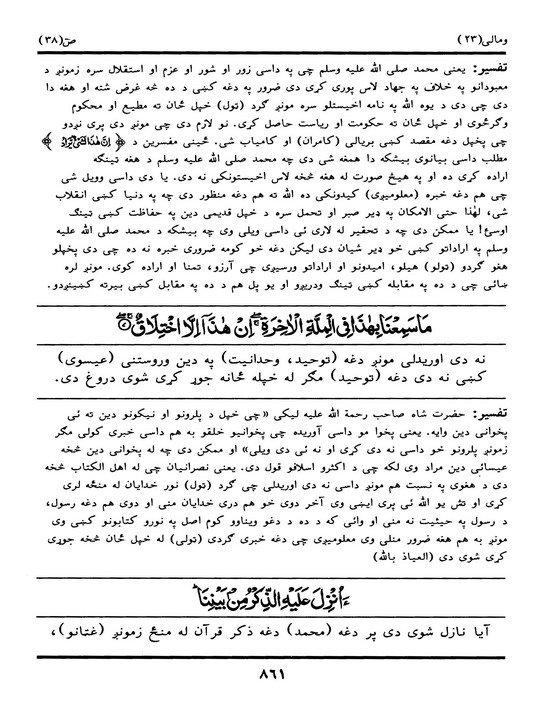 ومالی(۲۳) ص(۳۸)
تفسیر: یعنی محمد صلی الله علیه وسلم چی په داسی زور او شور او عزم او استقلال سره زمونږ د
معبودانو په خلاف په جهاد لاس پوری کړی دی ضرور په دغه کښی د ده څه غرض شته او هغه دا
دی چی دی د یوه الله په نامه اخیستلو سره مونږ ګرد (تول) خپل ځان ته مطیع او محکوم
وګرځوی او خپل ځان ته حکومت او ریاست حاصل کړی. نو لازم دی چی مونږ دی پری نږدو
چی پخپل دغه مقصد کښی بریالی (کامران) او کامیاب شی. ځینی مفسرین د ﴿ إِنَّ هٰذَا لَشَيْءٌ يُّرَادُ ﴾
مطلب داسی بیانوی بیشکه دا همغه شی دی چه محمد صلی الله علیه وسلم د هغه تینګه
اراده کړی ده او په هیڅ صورت له هغه څخه لاس اخیستونکی نه دی. یا دی داسی وویل شی
چی هم دغه خبره (معلومیږی) کیدونکی ده الله ته هم دغه منظور دی چه په دنیا کښی انقلاب
شی، لهٰذا حتی الامکان په ډیر صبر او تحمل سره د خپل قدیمی دین په حفاظت کښی تینګ
اوسئ! یا ممکن دی چه د تحقیر له لاری ئی داسی ویلی وی چه بیشکه د محمد صلی الله علیه
وسلم په اراداتو کښی خو ډیر شیان دی لیکن دغه خو کومه ضروری خبره نه ده چی دی پخپلو
هغو ګردو (تولو) هیلو، امیدونو او اراداتو ورسیږی چی آرزو، تمنا او اراده کوی. مونږ لره
ښائی چی د ده په مقابله کښی تینګ ودریږو او یو پل هم د ده په مقابل کښی بیرته کښینږدو.
مَا سَمِعْنَا بِهٰذَا فِي الْمِلَّةِ الْاٰخِرَةِ ۚ اِنْ هٰذَآ اِلَّا اخْتِلَاقٌ
نه دی اوریدلی مونږ دغه (توحید، وحدانیت) په دین وروستنی (عیسوی)
کښی نه دی دغه (توحید) مګر له خپله ځانه جوړ کړی شوی دروغ دی.
تفسیر: حضرت شاه صاحب رحمة الله علیه لیکی «چی خپل د پلرونو او نیکونو دین ته ئی
پخوانی دین وایه. یعنی پخوا مو داسی آوریده چی پخوانیو خلقو به هم داسی خبری کولی مګر
زمونږ پلرونو خو داسی نه دی کړی او نه ئی دی ویلی» او ممکن دی چه له پخوانی دین څخه
عیسائی دین مراد وی لکه چی د اکثرو اسلافو قول دی. یعنی نصرانیان چی له اهل الکتاب څخه
دی د هغوی په نسبت هم مونږ داسی نه دی اوریدلی چی ګرد (تول) نور خدایان له منځه لری
کړی او تش یو الله ئی پری ایښی وی آخر دوی خو هم دری خدایان منی او دوی هم دغه رسول،
د رسول په حیثیت نه منی او وائی که د ده د دغو ویناوو کوم اصل په نورو کتابونو کښی وی
مونږ به هم هغه ضرور منلی وی معلومیږی چی دغه خبری ګردی (تولی) له خپل ځان څخه جوړی
کړی شوی دی (العیاذ بالله)
ءَاُنْزِلَ عَلَيْهِ الذِّكْرُ مِنْۢ بَيْنِنَا
آیا نازل شوی دی پر دغه (محمد) دغه ذکر قرآن له منځ زمونږ (غتانو)،
۸٦۱